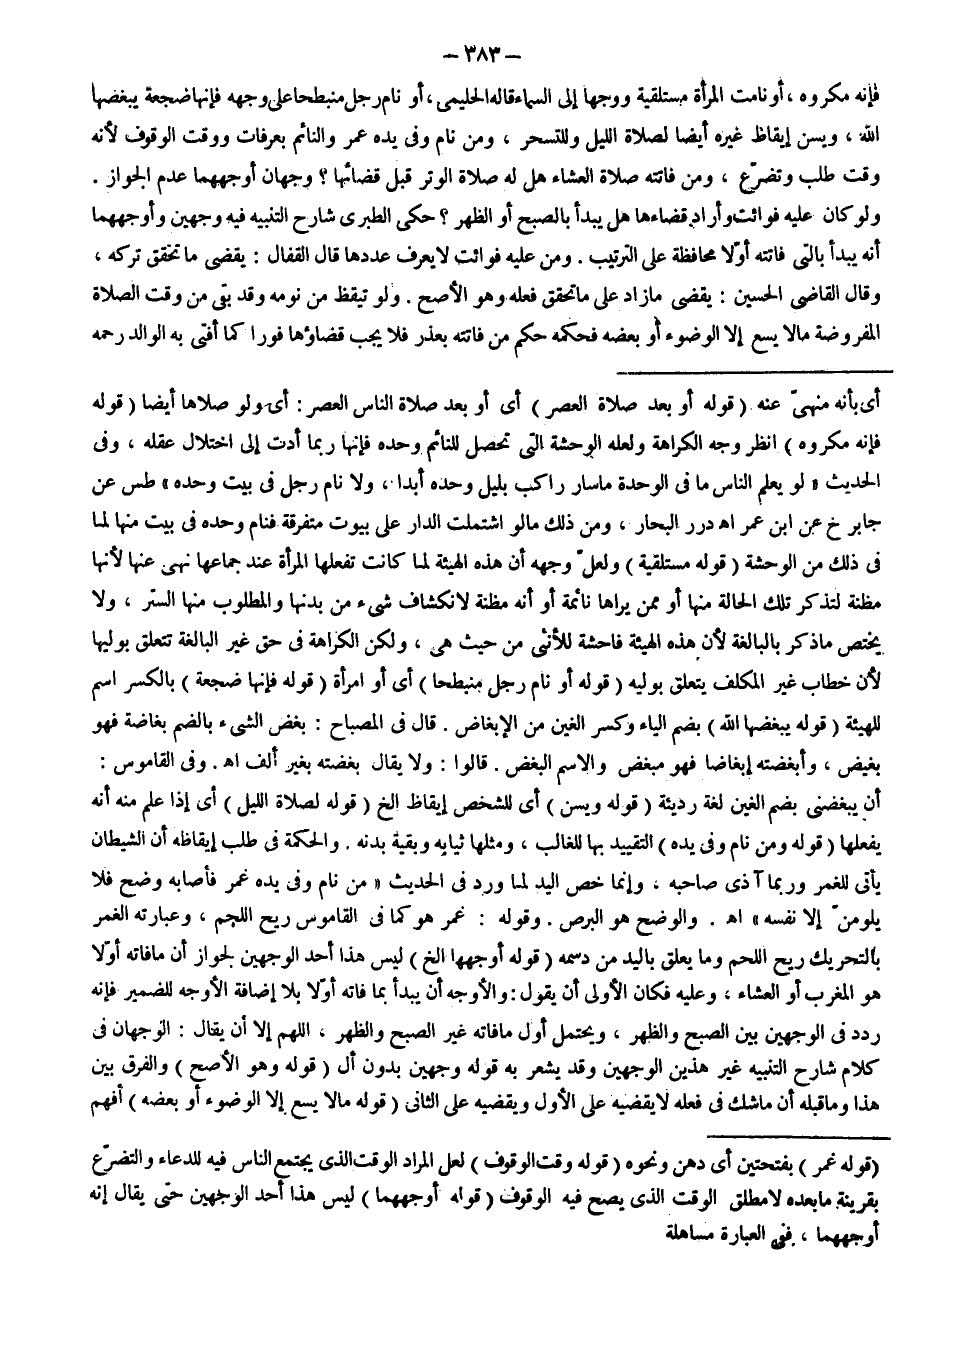 – ٣٨٣ –
فإنه مكروه ، أو نامت المرأة مستلقية ووجهها إلى السماء قاله الحليمى ، أو نام رجل منبطحا على وجهه فإنها ضجعة يبغضها
الله ، ويسن إيقاظ غيره أيضا لصلاة الليل وللتسحر ، ومن نام وفى يده غمر والنائم بعرفات ووقت الوقوف لأنه
وقت طلب وتضرّع ، ومن فاتته صلاة العشاء هل له صلاة الوتر قبل قضائها ؟ وجهان أوجههما عدم الجواز .
ولو كان عليه فوائت وأراد قضاءها هل يبدأ بالصبح أو الظهر ؟ حكى الطبرى شارح التنبيه فيه وجهين وأوجههما
أنه يبدأ بالتى فاتته أوّلا محافظة على الترتيب . ومن عليه فوائت لا يعرف عددها قال القفال : يقضى ما تحقق تركه ،
وقال القاضى الحسين : يقضى ما زاد على ما تحقق فعله وهو الأصح . ولو تيقظ من نومه وقد بقى من وقت الصلاة
المفروضة ما لا يسع إلا الوضوء أو بعضه فحكمه حكم من فاتته بعذر فلا يجب قضاؤها فورا كما أفتى به الوالد رحمه
أى بأنه منهىّ عنه ( قوله أو بعد صلاة العصر ) أى أو بعد صلاة الناس العصر : أى ولو صلاها أيضا ( قوله
فإنه مكروه ) انظر وجه الكراهة ولعله الوحشة التى تحصل للنائم وحده فإنها ربما أدت إلى اختلال عقله ، وفى
الحديث « لو يعلم الناس ما فى الوحدة ما سار راكب بليل وحده أبدا ، ولا نام رجل فى بيت وحده » طس عن
جابر خ عن ابن عمر اه درر البحار ، ومن ذلك ما لو اشتملت الدار على بيوت متفرقة فنام وحده فى بيت منها لما
فى ذلك من الوحشة ( قوله مستلقية ) ولعلّ وجهه أن هذه الهيئة لما كانت تفعلها المرأة عند جماعها نهى عنها لأنها
مظنة لتذكر تلك الحالة منها أو ممن يراها نائمة أو أنه مظنة لانكشاف شىء من بدنها والمطلوب منها الستر ، ولا
يختص ما ذكر بالبالغة لأن هذه الهيئة فاحشة للأنثى من حيث هى ، ولكن الكراهة فى حق غير البالغة تتعلق بوليها
لأن خطاب غير المكلف يتعلق بوليه ( قوله أو نام رجل منبطحا ) أى أو امرأة ( قوله فإنها ضجعة ) بالكسر اسم
للهيئة ( قوله يبغضها الله ) بضم الياء وكسر الغين من الإبغاض . قال فى المصباح : بغض الشىء بالضم بغاضة فهو
بغيض ، وأبغضته إبغاضا فهو مبغض والاسم البغض . قالوا : ولا يقال بغضته بغير ألف اه . وفى القاموس :
أن يبغضنى بضم الغين لغة رديئة ( قوله ويسن ) أى للشخص إيقاظ الخ ( قوله لصلاة الليل ) أى إذا علم منه أنه
يفعلها ( قوله ومن نام وفى يده ) التقييد بها للغالب ، ومثلها ثيابه وبقية بدنه . والحكمة فى طلب إيقاظه أن الشيطان
يأتى للغمر وربما آذى صاحبه ، وإنما خص اليد لما ورد فى الحديث « من نام وفى يده غمر فأصابه وضح فلا
يلومنّ إلا نفسه » اه . والوضح هو البرص . وقوله : غمر هو كما فى القاموس ريح اللحم ، وعبارته الغمر
بالتحريك ريح اللحم وما يعلق باليد من دسمه ( قوله أوجهها الخ ) ليس هذا أحد الوجهين لجواز أن ما فاته أوّلا
هو المغرب أو العشاء ، وعليه فكان الأولى أن يقول : والأوجه أن يبدأ بما فاته أوّلا بلا إضافة الأوجه للضمير فإنه
ردد فى الوجهين بين الصبح والظهر ، ويحتمل أول ما فاته غير الصبح والظهر ، اللهم إلا أن يقال : الوجهان فى
كلام شارح التنبيه غير هذين الوجهين وقد يشعر به قوله وجهين بدون أل ( قوله وهو الأصح ) والفرق بين
هذا وما قبله أن ما شك فى فعله لا يقضيه على الأول ويقضيه على الثانى ( قوله ما لا يسع إلا الوضوء أو بعضه ) أفهم
( قوله غمر ) بفتحتين أى دهن ونحوه ( قوله وقت الوقوف ) لعل المراد الوقت الذى يجتمع الناس فيه للدعاء والتضرّع
بقرينة ما بعده لا مطلق الوقت الذى يصح فيه الوقوف ( قوله أوجههما ) ليس هذا أحد الوجهين حتى يقال إنه
أوجههما ، ففى العبارة مساهلة